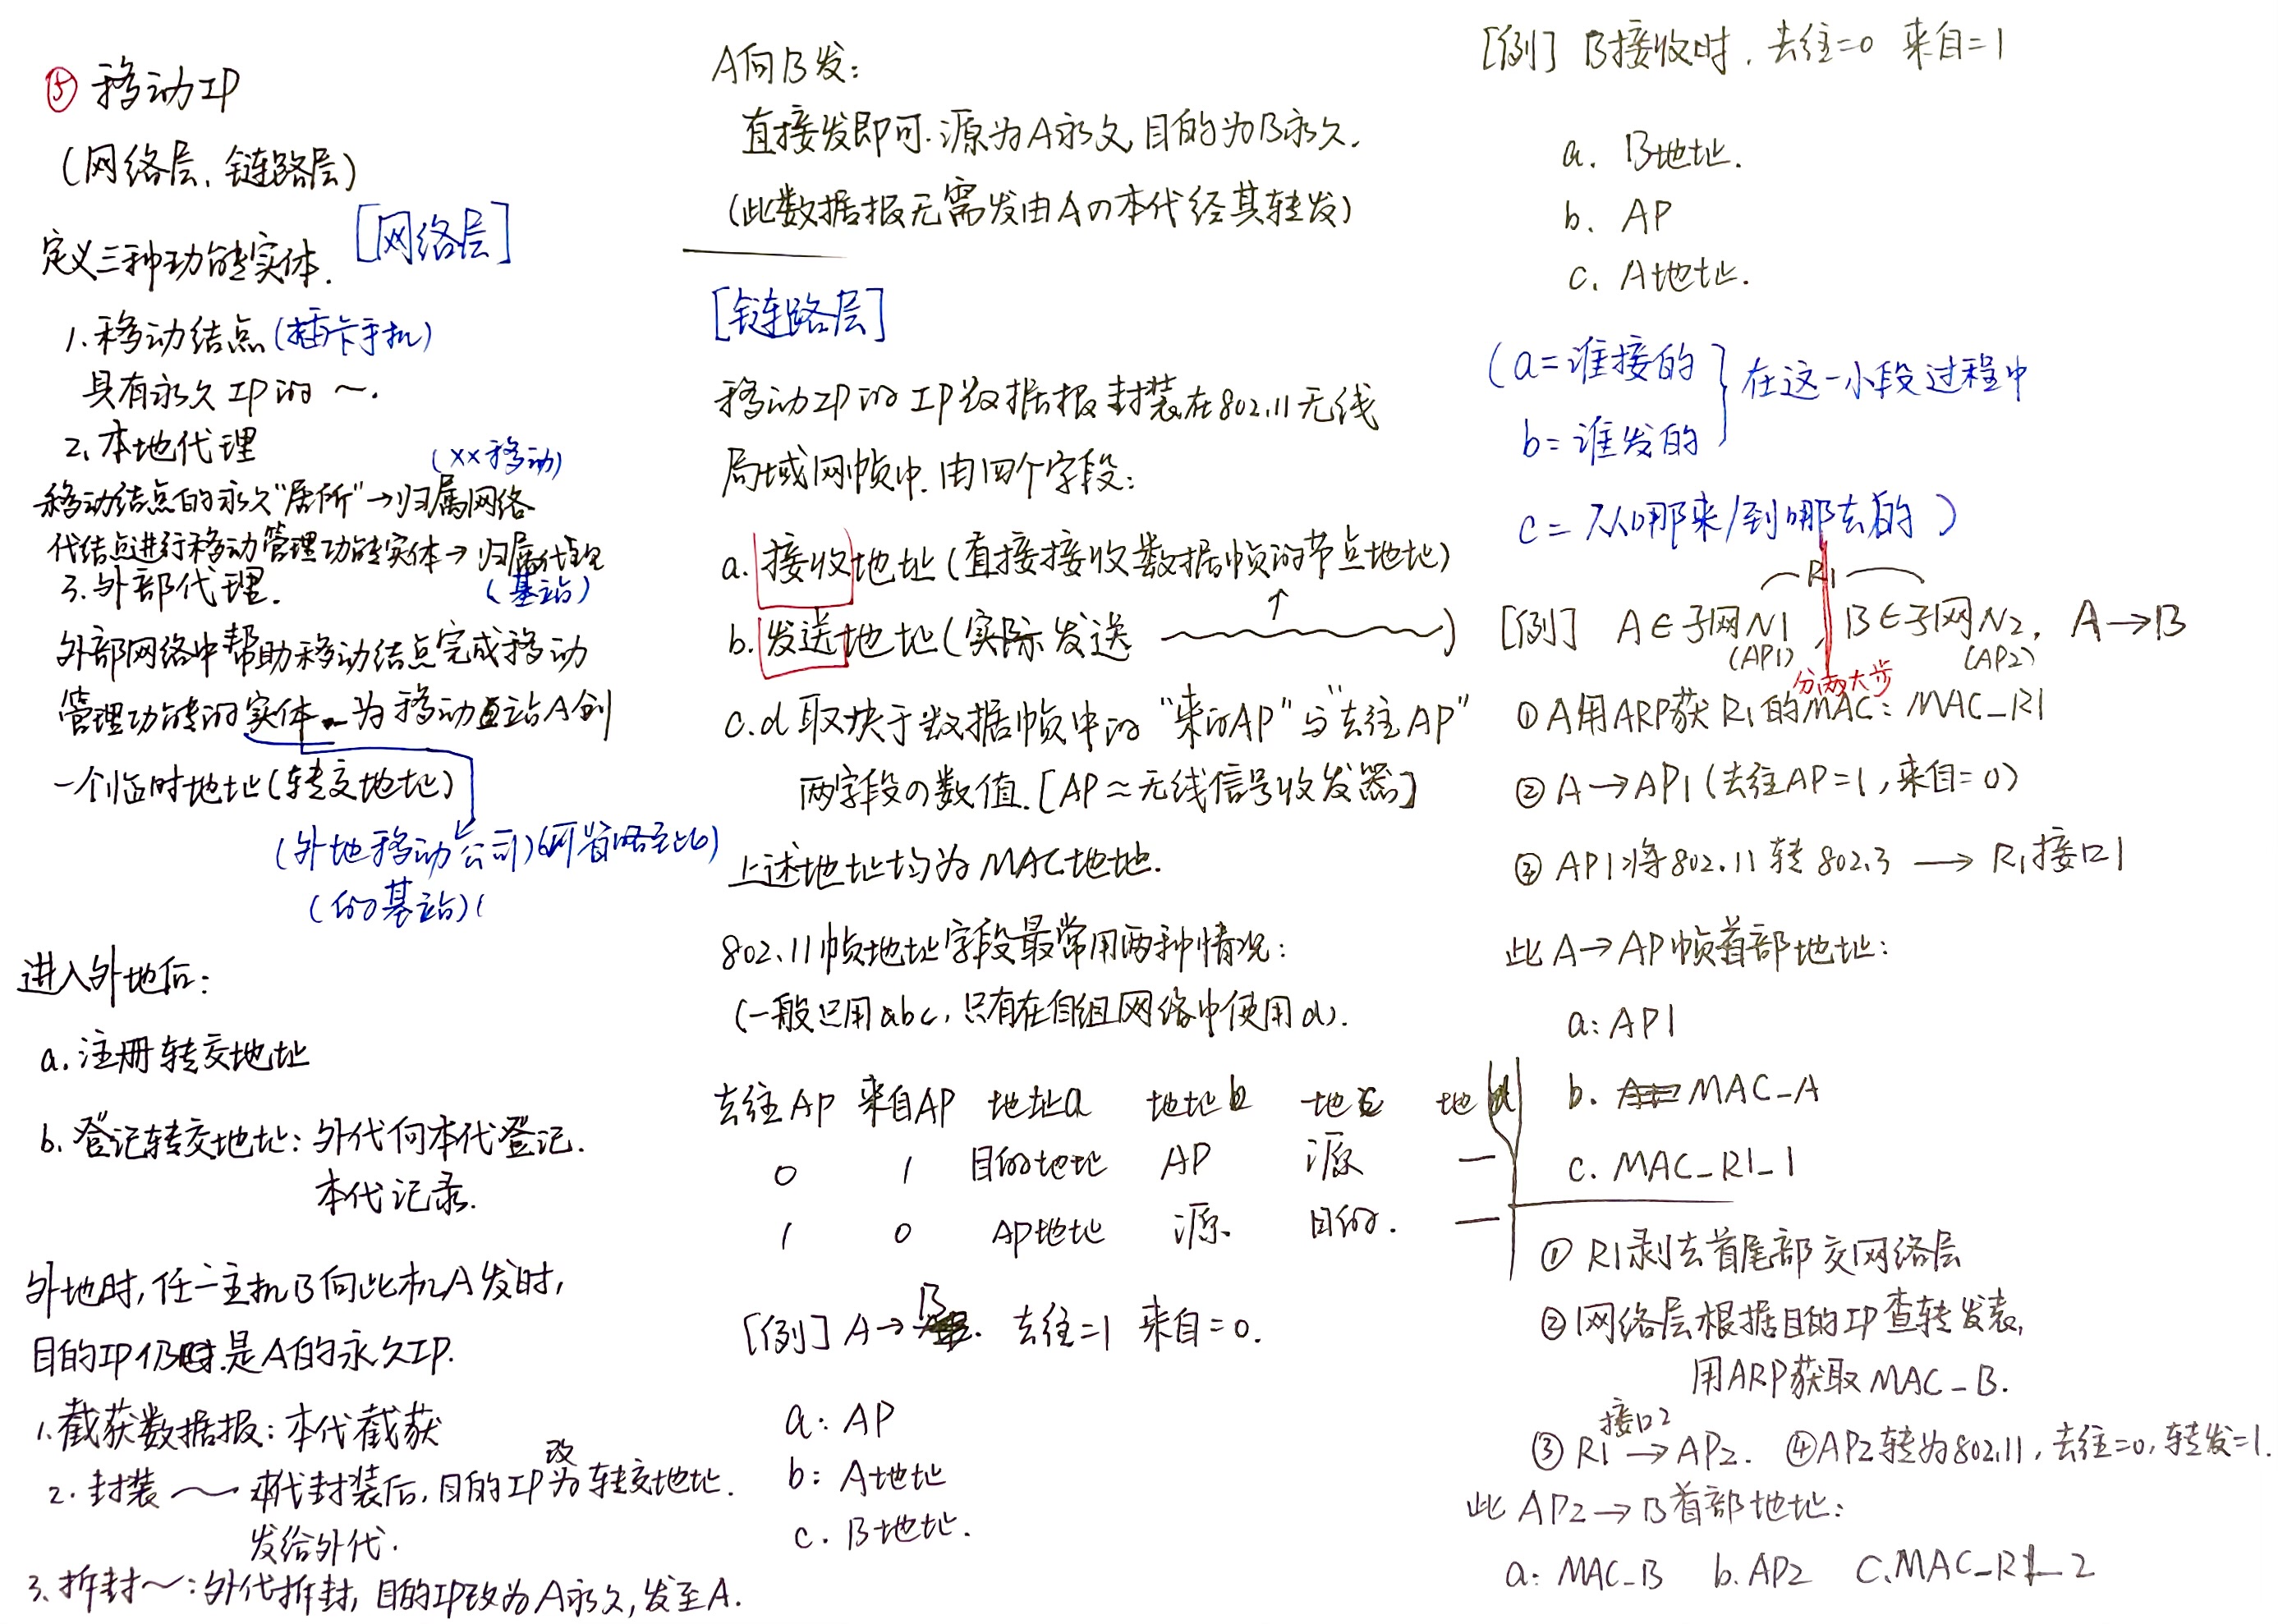 ⑤ 移动IP
(网络层、链路层)
[网络层]
定义三种功能实体.
1.移动结点(插卡手机)
具有永久IP的 ～.
2.本地代理
(××移动)
移动结点的永久"居所"→归属网络
代结点进行移动管理功能实体→归属代理
3.外部代理.
(基站)
外部网络中帮助移动结点完成移动
管理功能的实体 为移动站A创
一个临时地址(转交地址)
(外地移动公司)(可省略至此)
(的基站)
进入外地后:
a.注册转交地址
b.登记转交地址:外代向本代登记.
本代记录.
外地时,任一主机B向此机A发时,
目的IP仍是A的永久IP.
1.截获数据报:本代截获
2.封装～ 本代封装后,目的IP改为转交地址.
发给外代.
3.拆封～:外代拆封,目的IP改为A永久,发至A.
A向B发:
直接发即可.源为A永久,目的为B永久.
(此数据报无需发由A の本代经其转发)
[链路层]
移动IP的IP数据报封装在802.11无线
局域网帧中.由四个字段:
a.接收地址(直接接收数据帧的节点地址)
b.发送地址(实际发送 ～ ↑)
c.d取决于数据帧中的"来自AP"与"去往AP"
两字段の数值.[AP≈无线信号收发器]
上述地址均为MAC地地.
802.11帧地址字段最常用两种情况:
(一般只用abc,只有在自组网络中使用d).
去往AP 来自AP 地址a 地址b 地c 地d
0 1 目的地址 AP 源 —
1 0 AP地址 源. 目的. —
[例] A→B. 去往=1 来自=0.
a: AP
b: A地址
c. B地址.
[例] B接收时. 去往=0 来自=1
a. B地址.
b. AP
c. A地址.
(a=谁接的
在这一小段过程中
b=谁发的
c=从哪来/到哪去的)
R1
[例] A∈子网N1, B∈子网N2, A→B
(AP1) (AP2)
分两大步
①A用ARP获R1的MAC: MAC_R1
②A→AP1(去往AP=1,来自=0)
③AP1将802.11转802.3→R1接口1
此A→AP帧首部地址:
a: AP1
b. MAC_A
c. MAC_R1_1
①R1剥去首尾部交网络层
②网络层根据目的IP查转发表,
用ARP获取MAC_B.
接口2
③R1→AP2. ④AP2转为802.11,去往=0,转发=1.
此AP2→B首部地址:
a: MAC_B b. AP2 C.MAC_R1_2